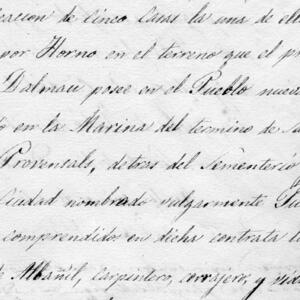 eacion de cinco casas la una de ell
por Horno en el terreno que el pr
Dalmau posee en el Pueblo nuev
o en la Marina del termino de S
Provensals, detras del Sementerio
Ciudad nombrado vulgarmente Pu
comprendidos en dicha contrata l
e Albañil, carpintero, cerrajero, y vid